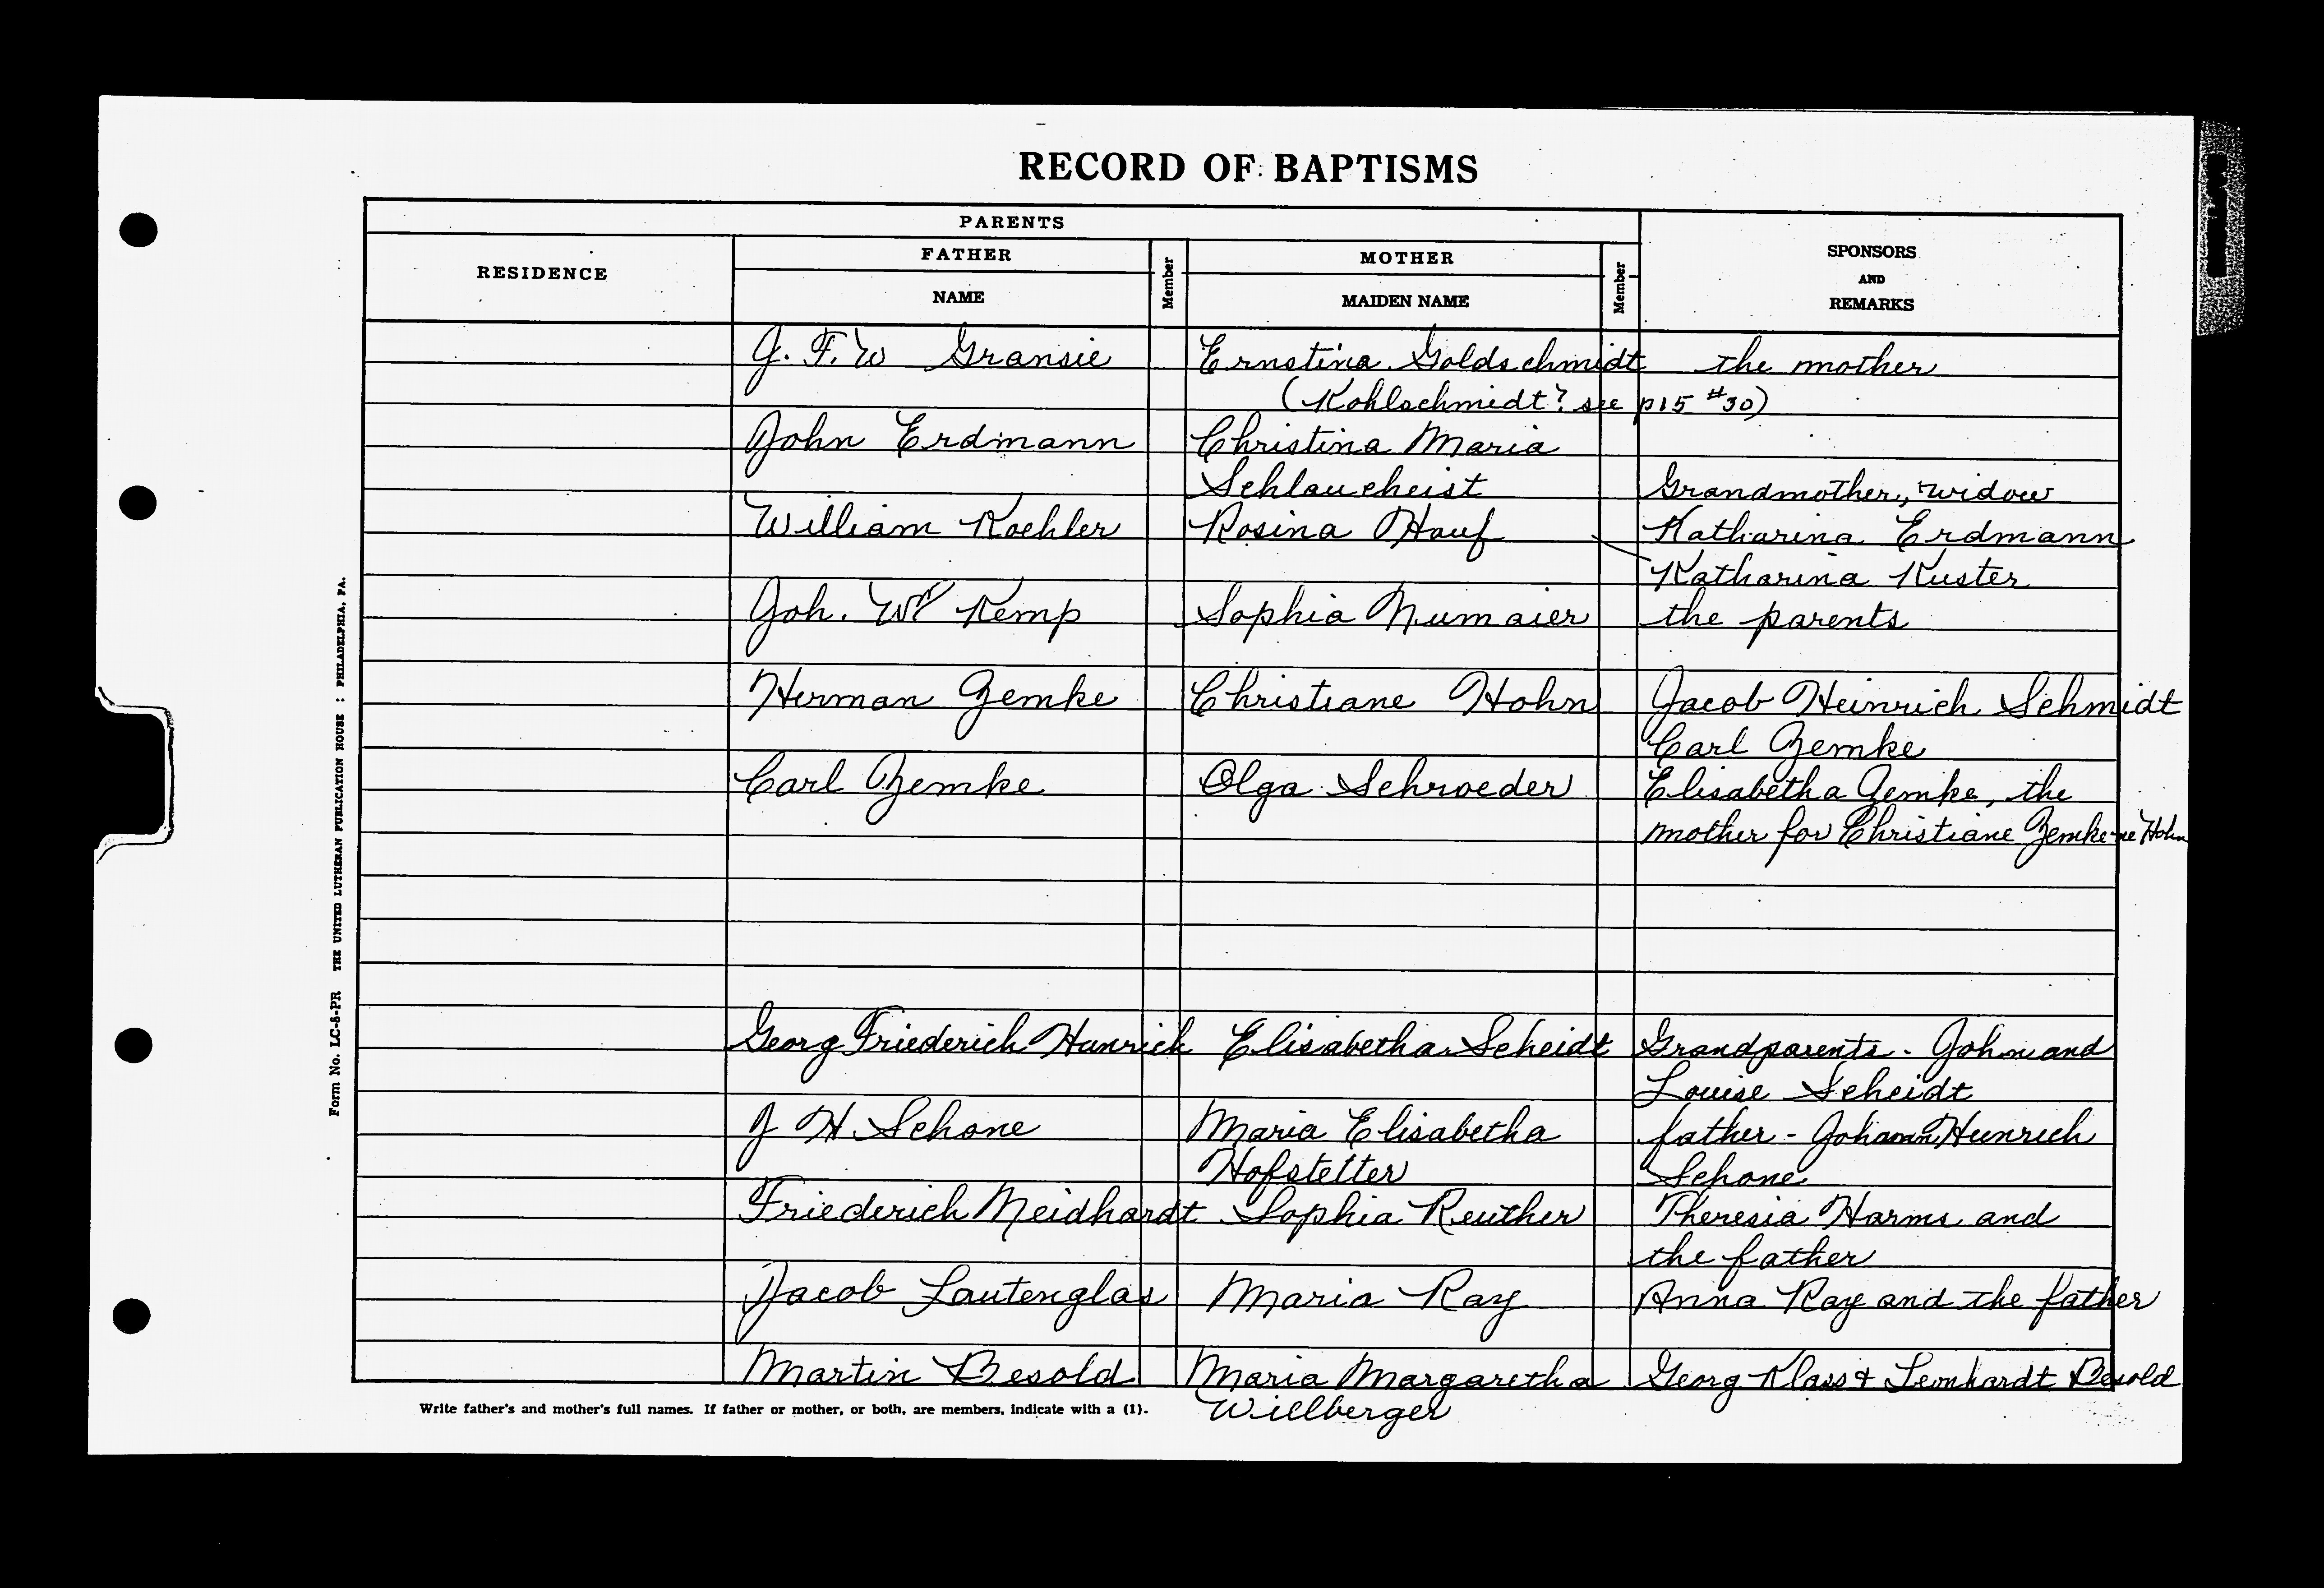 RECORD OF BAPTISMS
PARENTS
RESIDENCE
FATHER
NAME
Member
MOTHER
MAIDEN NAME
Member
SPONSORS
AND
REMARKS
J. F. W Gransie Ernstina Goldschmidt the mother
(Kohlschmidt? see p15 #30)
John Erdmann Christina Maria
Schlaucheist Grandmother, widow
William Koehler Rosina Hauf Katharina Erdmann
Katharina Kuster
Joh. Wm Kemp Sophia Numaier the parents
Herman Zemke Christiane Hohn Jacob Heinrich Schmidt
Carl Zemke
Carl Zemke Olga Schroeder Elisabetha Zemke, the
mother for Christiane Zemke-ne Hohn
Georg Friederich Hunrich Elisabetha Scheidt Grandparents - John and
Louise Scheidt
J H Schone Maria Elisabetha father - Johann Heinrich
Hofstetter Schone
Friederich Meidhardt Sophia Reuther Theresia Harms and
the father
Jacob Lautenglas Maria Ray Anna Ray and the father
Martin Besold Maria Margaretha Georg Klass & Leonhardt Besold
Willberger
Write father's and mother's full names. If father or mother, or both, are members, indicate with a (1).
Form No. LC-8-PR THE UNITED LUTHERAN PUBLICATION HOUSE : PHILADELPHIA, PA.